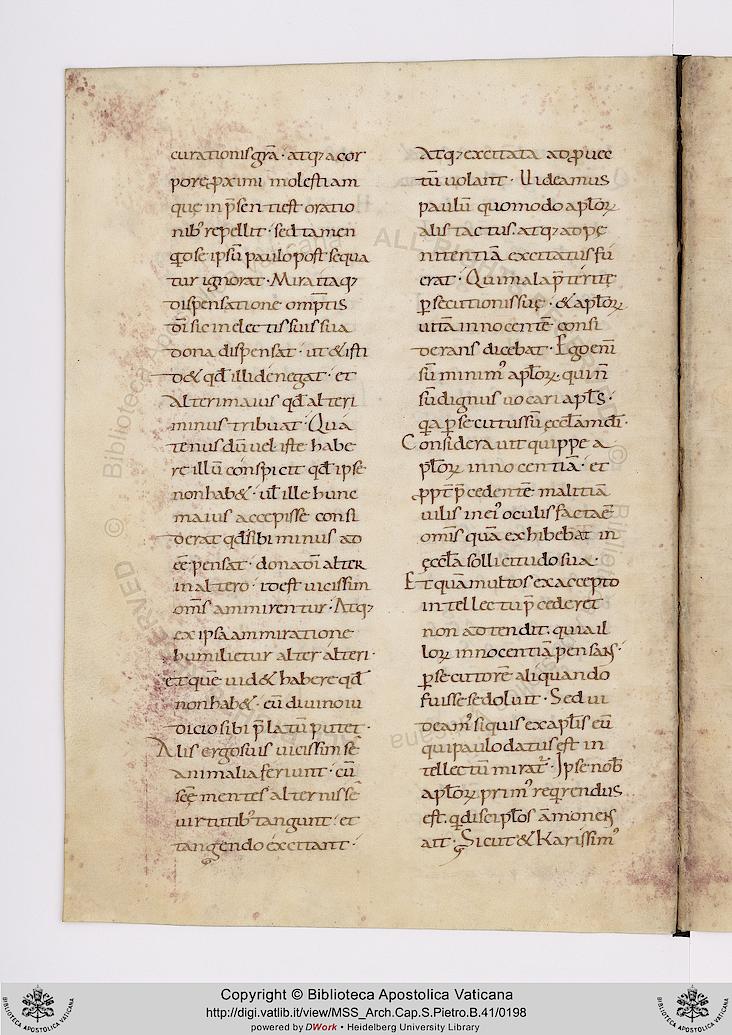 curationis gr̄a · atq; a cor
pore ꝓximi molestiam
quę in p̄senti est oratio
nib; repellit · sed tamen
qͦ se ipsū paulo post sequa
tur ignorat · Mira itaq;
dispensatione omp̄tis
dī sic in electis suis sua
dona dispensat · ut & isti
d& qd̄ illi denegat · et
Alteri maius qd̄ alteri
minus tribuat · Qua
tenus dū uel iste habe
re illū conspicit qd̄ ipse
non hab& · ul̄ ille hunc
maius accepisse consi
derat qd̄ sibi minus ad
eē pensat · dona dī alter
in altero · idest uicissim
om̄s ammirentur · Atq;
ex ipsa ammiratione
humilietur alter alteri ·
et quē uid& habere qd̄
non hab& · eū diuino iu
dicio sibi p̄latū putet ·
Alis ergo suis uicissim se
animalia feriunt · cū
scē mentes alternis se
uirtutib; tangunt · et
tangendo excitant ·
Atq; excitata ad ꝓuec
tū uolant · Uideamus
paulū quomodo apl̄oꝝ
alis tactus · atq; ad pę
nitentiā excitatus fu
erat · Qui mala p̄teritę
ꝑsecutionis suę · & apl̄oꝝ
uitā innocentē consi
derans dicebat · Ego enī
sū minim; apl̄oꝝ · qui n̄
sū dignus uocari apl̄s ·
qa ꝑsecutus sū ęccl̄am dī ·
Considerauit quippe a
pl̄oꝝ innocentiā · et
ꝓpt̄ p̄cedentē malitiā
uilis in ei; oculis facta ē
omīs quā exhibebat in
ęccl̄a sollicitudo sua ·
Et quā multos ex accepto
intellectu p̄cederet
non adtendit · quia il
loꝝ innocentiā pensans ·
ꝑsecutorē aliquando
fuisse se doluit · Sed ui
deam; si quis ex apl̄is eū
qui paulo datus est in
tellectū mirat̄ · Ipse nob̄
apl̄oꝝ prim; reqrendus
est · qͥ discipl̄os āmonens
ait · Sicut & Karissim;
Copyright © Biblioteca Apostolica Vaticana
http://digi.vatlib.it/view/MSS_Arch.Cap.S.Pietro.B.41/0198
powered by DWork • Heidelberg University Library